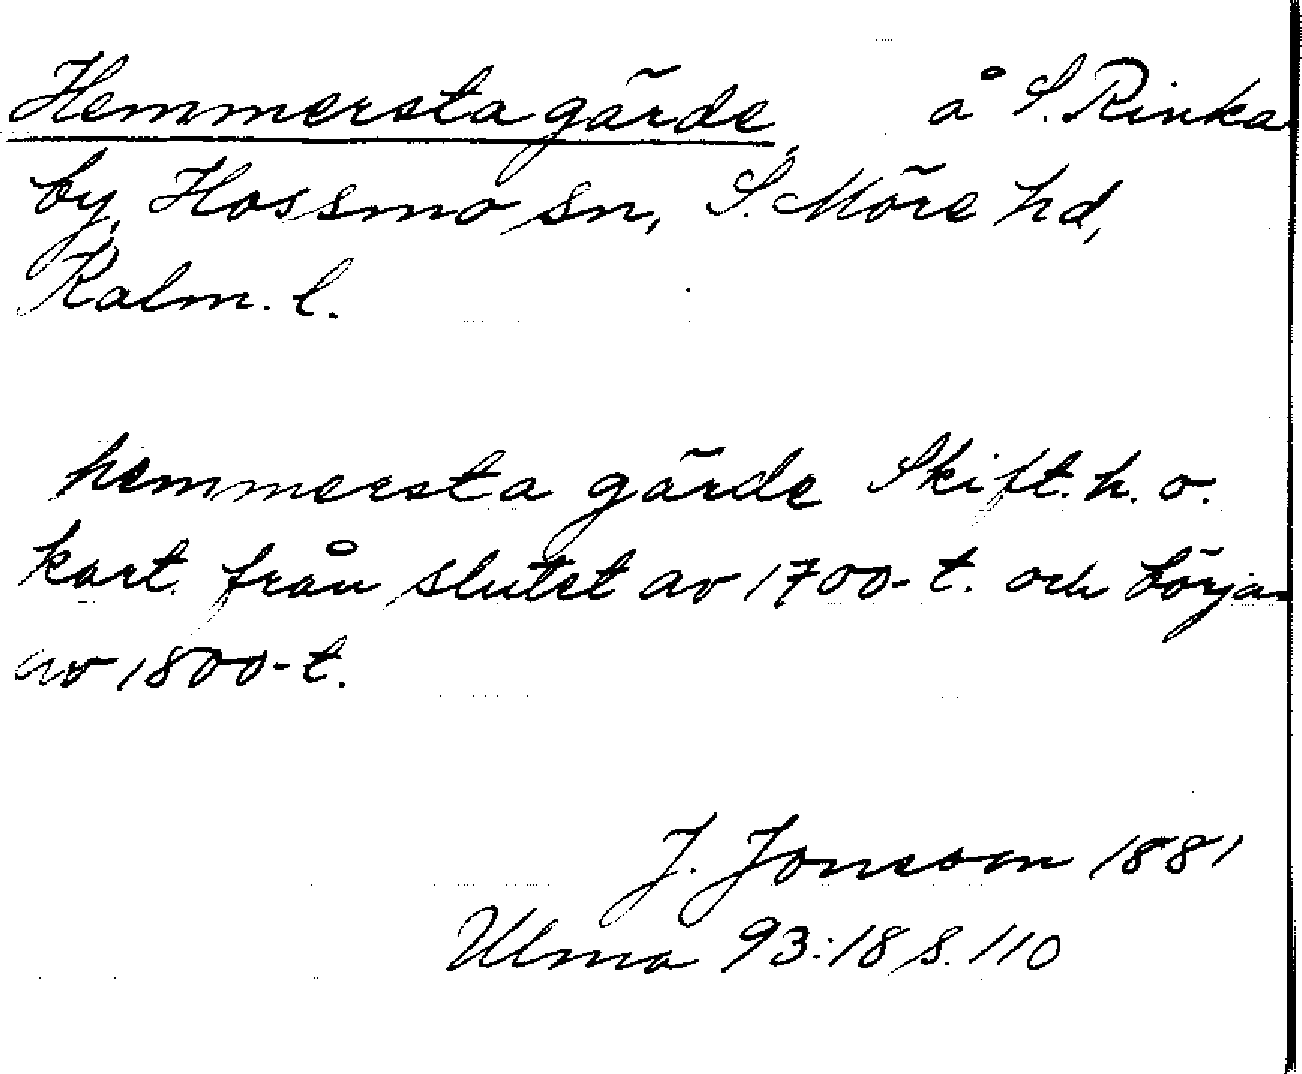 Hemmersta gärde, å S. Rinka
by, Hossmo sn, S. Möre hd,
Kalm. l.
hemmersta gärde Skift. h. o.
kart. från slutet av 1700-t. och början
av 1800-t.
J. Jonsson 1881
Ulma 93:18 s. 110